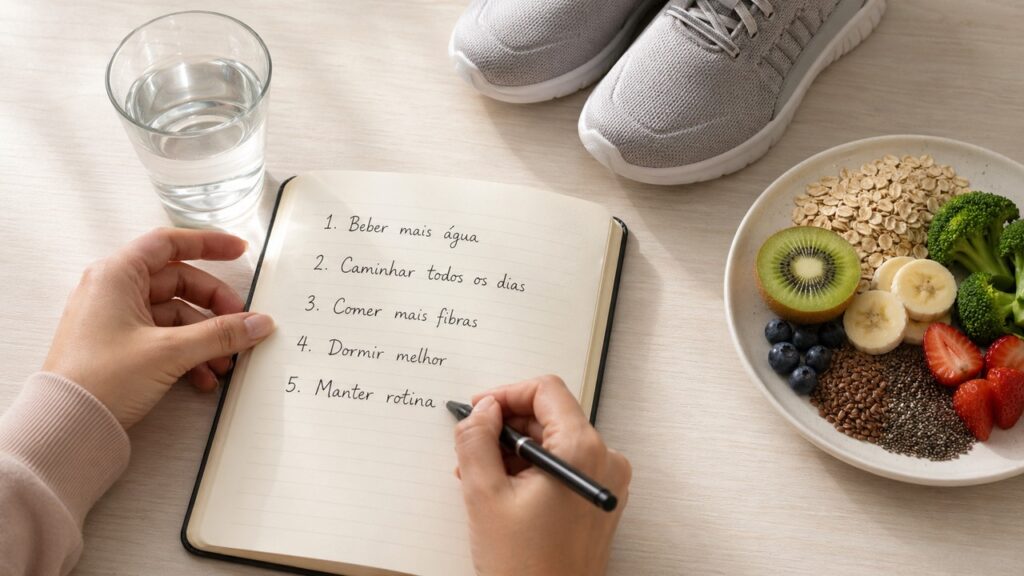 1. Beber mais água
2. Caminhar todos os dias
3. Comer mais fibras
4. Dormir melhor
5. Manter rotina